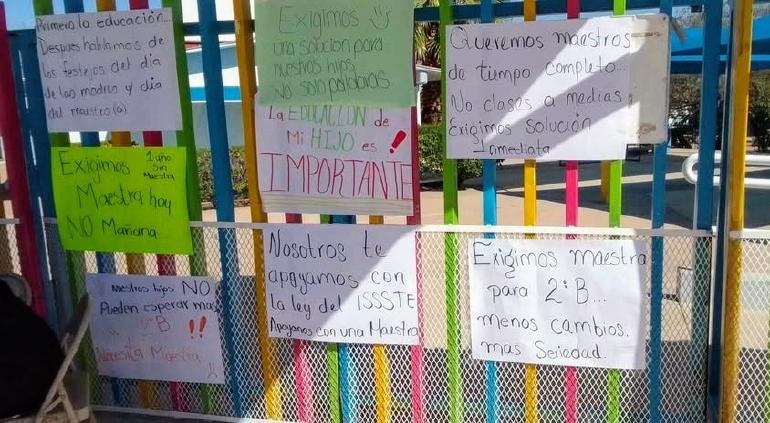 Primero la educación...
Despues hablamos de
los festejos del dia
de las madres y dia
del maestro(a)
Exigimos
una solución para
nuestros hijos
NO solo palabras
Queremos maestros
de tiempo completo...
No clases a medias
Exigimos solución
Inmediata
La EDUCACIÓN de
Mi HIJO es !
IMPORTANTE
Exigimos 1 año
Sin
Maestra
Maestra hoy
NO Mañana
Nuestros hijos NO
Pueden esperar mas
2º B !!
Necesita Maestra
Nosotros te
apoyamos con
la ley del ISSSTE
Apoyanos con una Maestra
Exigimos maestra
para 2º B...
menos cambios.
mas Seriedad.